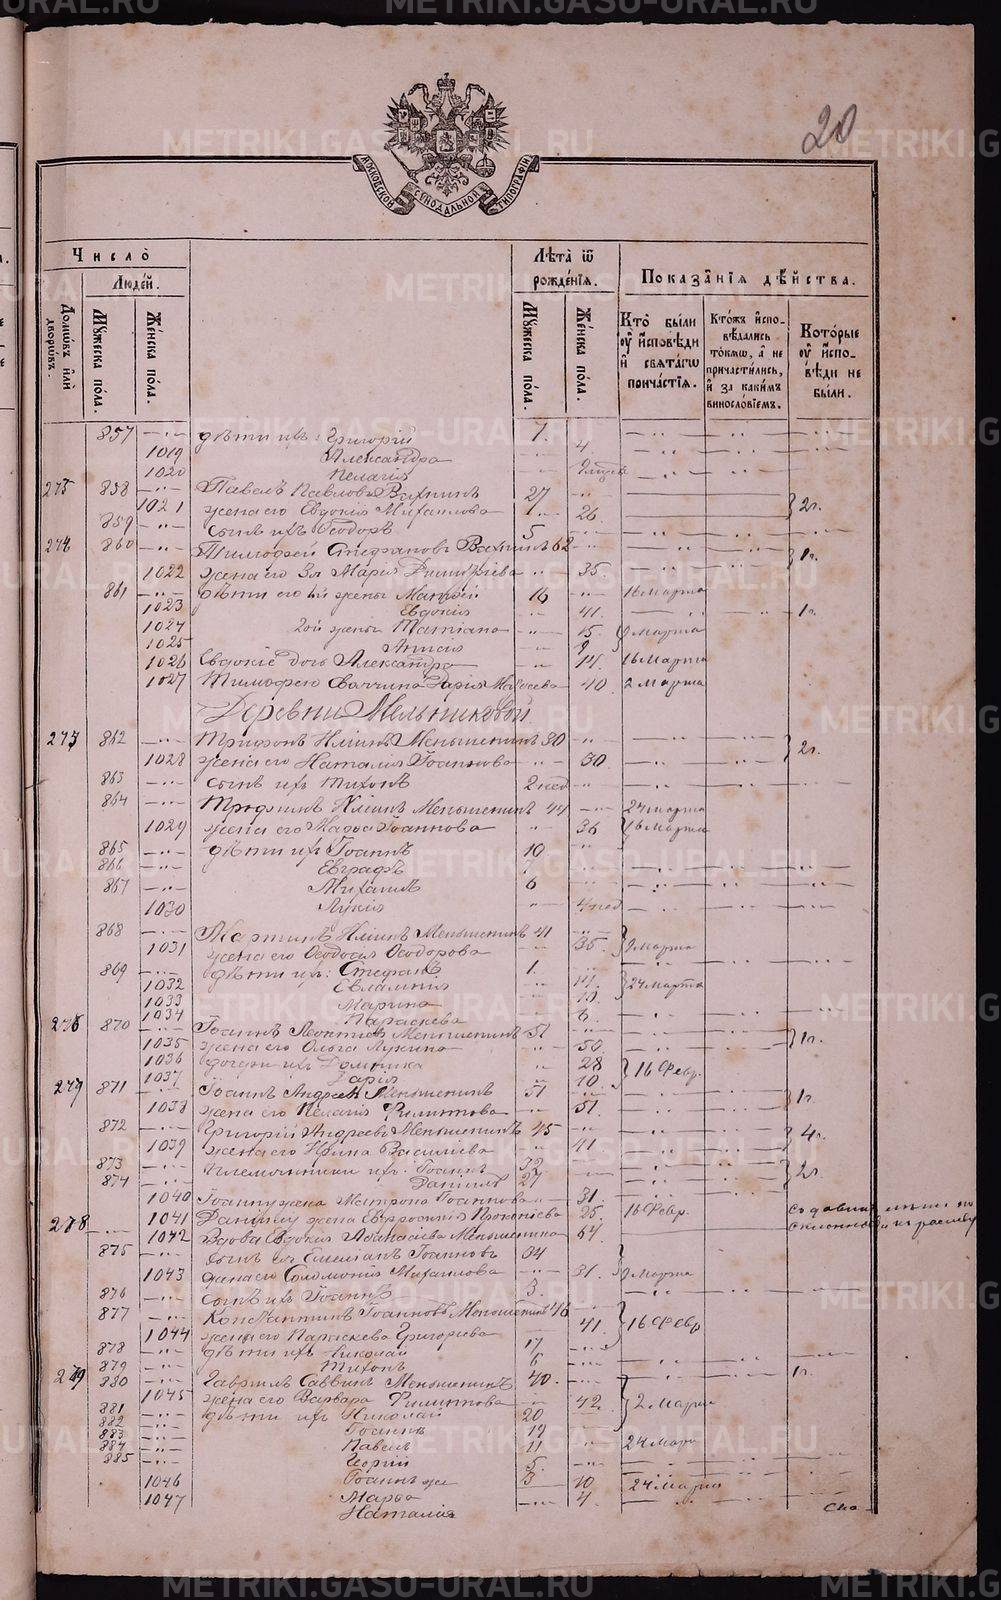 20
МОСКОВСКОЙ СѴНОДАЛЬНОЙ ТИПОГРАФІИ
Число̀
Людéй.
Лѣта̀ ѿ рождéнїя.
Показáнїя дѣ́йства.
Домѡ́въ и҆лѝ дворѡ́въ.
Мꙋ́жеска по́ла.
Же́нска по́ла.
Мꙋ́жеска по́ла.
Же́нска по́ла.
Кто̀ бы́ли ᲂу҆ и҆спо́вѣди и҆ свята́гѡ причáстїя.
Кто́жъ и҆спо-вѣ́дались то́кмѡ, а҆ не причасти́лись, и҆ за каки́мъ винослóвїемъ.
Кото́рые ᲂу҆ и҆спо́-вѣди не бы́ли.
857 дѣти ихъ: Григорій 7
1019 Александра 4
1020 Пелагія
275 858 Павелъ Павловъ Вахнинъ 27
1021 жена его Евдокія Михаилова 26 2г.
859 сынъ ихъ Ѳеодоръ 5
276 860 Тимоѳей Стефановъ Вахнинъ 62 1г.
1022 жена его 3я Марія Димитріева 35
861 дѣти его 1й жены Матѳей 16 16 Марта
1023 Евдокія 41 1г.
1024 2ой жены Татіана 15
1025 Анисія 9 Марта
1026 Евдокіи дочь Александра 14 16 Марта
1027 Тимофею Дарія 40 2 Марта
Деревни Мельниковой
277 862 Трифонъ Иліинъ Меньшенинъ 30
1028 жена его Наталія Іоаннова 30 2г.
863 сынъ ихъ Тихонъ 2 нед
864 Трофимъ Иліинъ Меньшенинъ 44 24 Марта
1029 жена его Марѳа Іоаннова 36 16 Марта
865 дѣти ихъ Іоаннъ 10
866 Евграфъ
867 Михаилъ 6
1030 Лукія 4 нед
868 Мартинъ Иліинъ Меньшенинъ 41
1031 жена его Ѳеодосія Ѳеодорова 35 9 Марта
869 дѣти ихъ: Стефанъ 1
1032 Евлампія 24 Марта
1033 Марина 10
1034 Параскева 6
870 Іоаннъ Леонтіевъ Меньшенинъ 51
1035 жена его Ольга Лукина 50 1г.
1036 дочери ихъ Домника 28 16 Февр.
1037 Дарія 10
279 871 Іоаннъ Андреевъ Меньшенинъ 51
1038 жена его Пелагія Филиппова 51 1г.
872 Григорій Андреевъ Меньшенинъ 45
1039 жена его Ирина Василіева 41 4г.
873 племянники ихъ Іоаннъ 32
874 Даніилъ 27 2г
1040 Іоанну жена Матрона Іоаннова 31
1041 Даніилу жена Евфросинія Прокопіева 25 16 Февр.
278 1042 Вдова Евдокія Аѳанасіева Меньшенина 64 склонности къ расколу
875 сынъ ея Емеліанъ Іоанновъ 34
1043 жена его Соломонія Михаилова 31 9 Марта
876 сынъ ихъ Іоаннъ 3
877 Константинъ Іоанновъ Меньшенинъ 46
1044 жена его Параскева Григоріева 41 16 Февр
878 дѣти ихъ Николай 17
879 Тихонъ 6
279 880 Гавріилъ Саввинъ Меньшенинъ 40 1г.
1045 жена его Варвара Филиппова 42 2 Марта
881 дѣти ихъ Николай 20
882 Іоаннъ
883 Павелъ 11 24 Мар
884 Георгій 5
885 Іоаннъ 3
1046 Марѳа 10 24 Марта
1047 Наталія 4